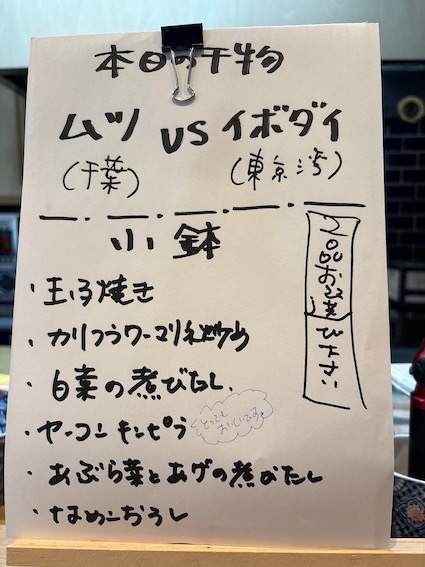 本日の干物
ムツ VS イボダイ
(千葉) (東京湾)
小鉢
2品お選び下さい
・玉子焼き
・カリフラワーマリネ炒め
・白菜の煮びたし
・ヤーコンキンピラ
とっても
おいしいです♪
・あぶら菜とあげの煮びたし
・なめこおろし